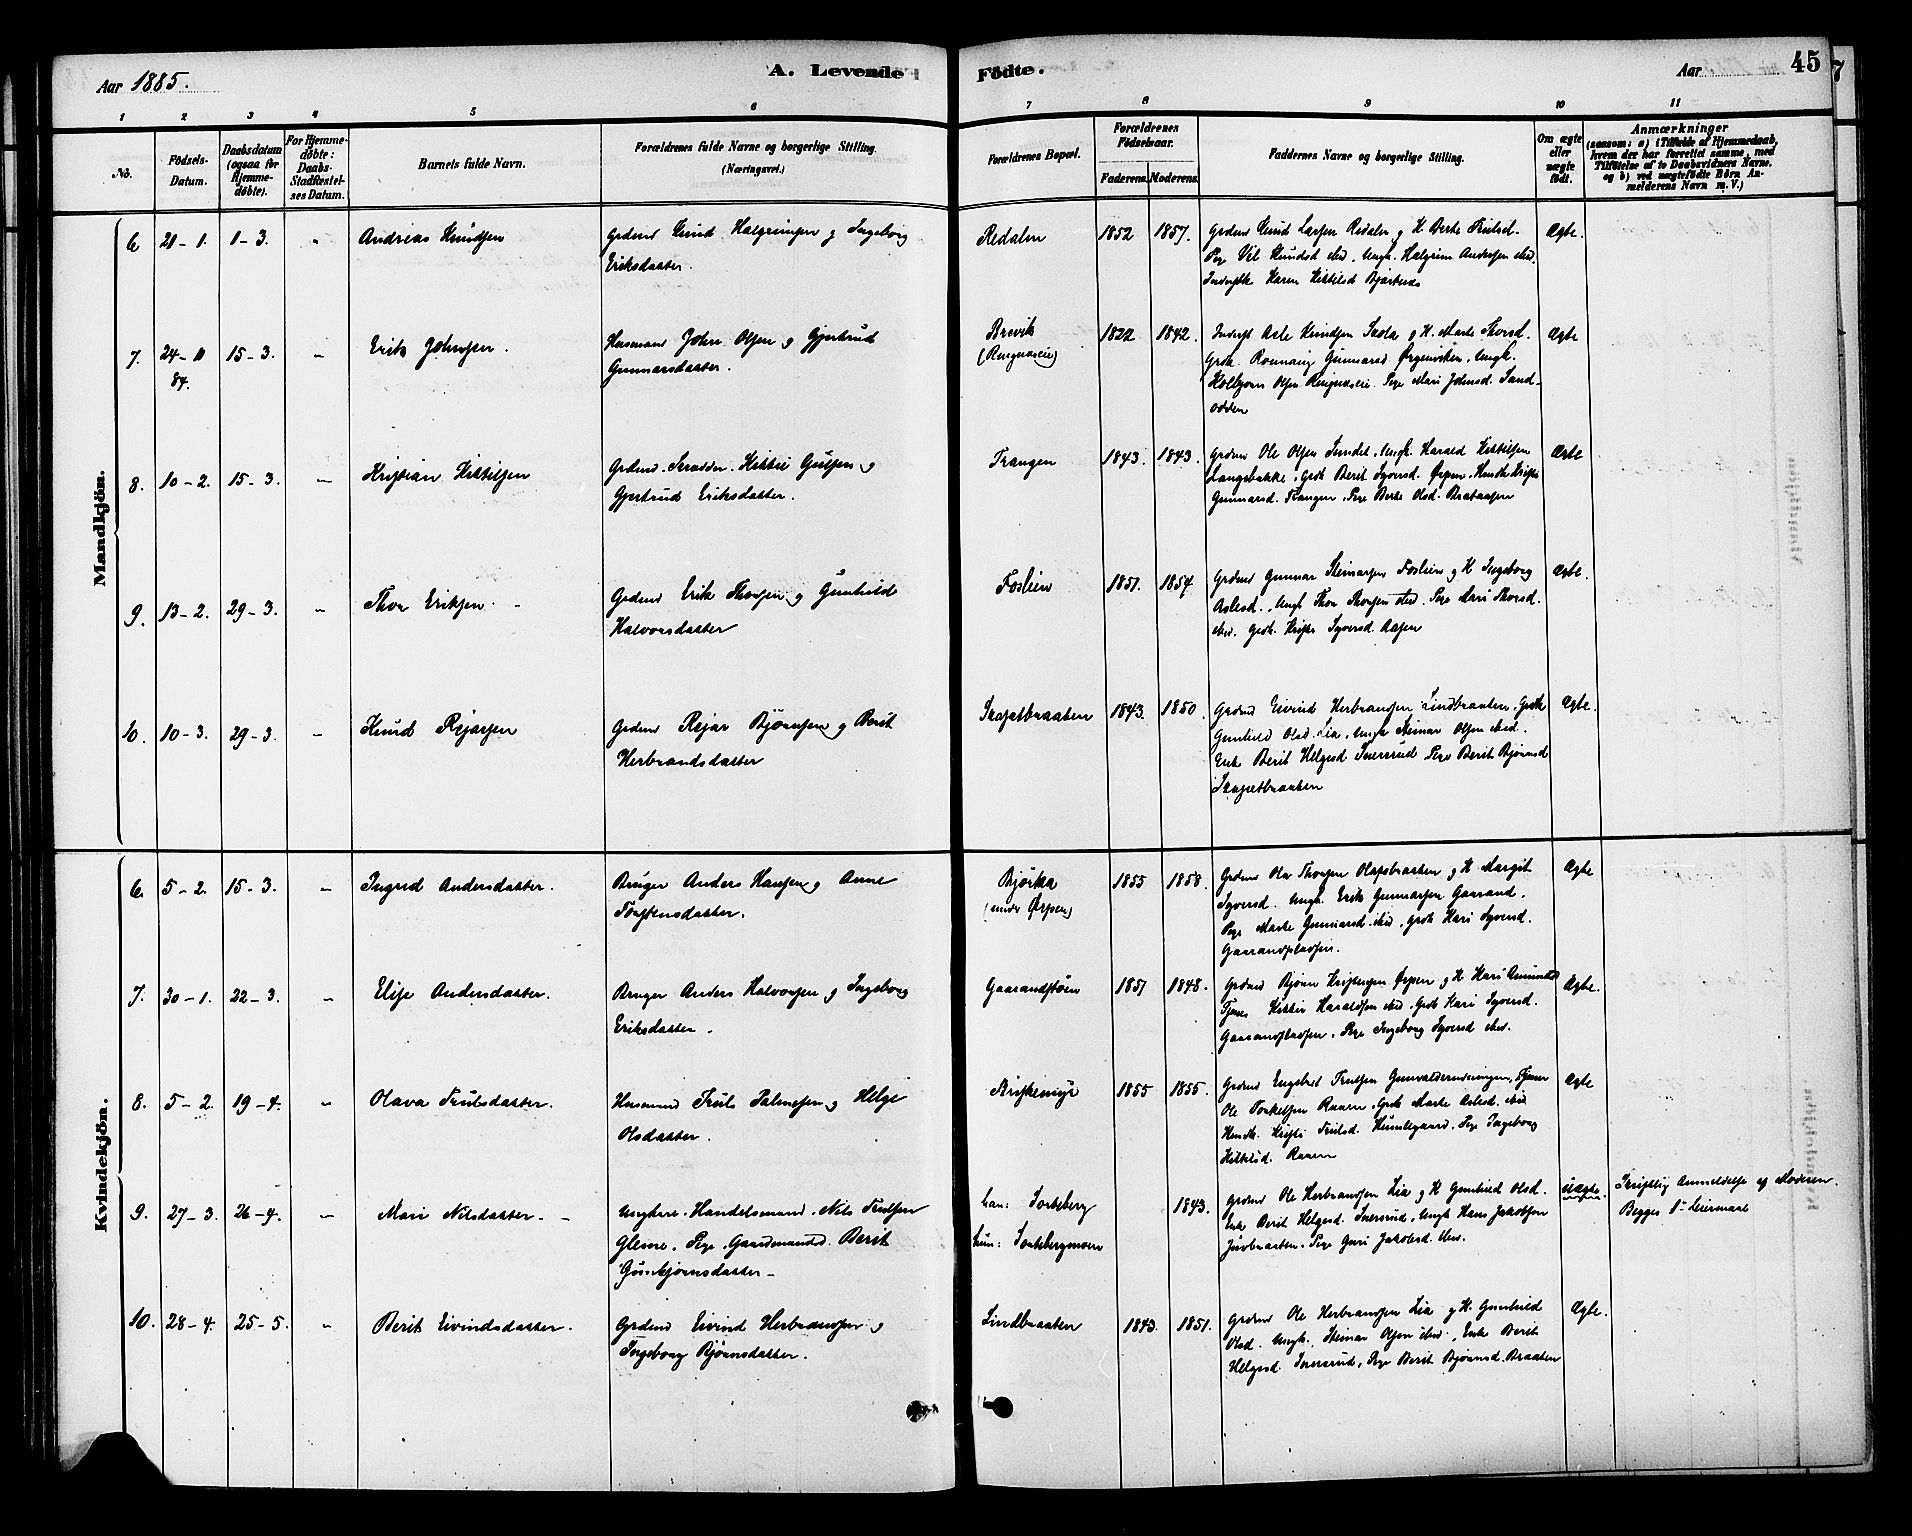 Aar 1885.
A. Levende
Födte.
Aar
45
1 2 3 4 5 6 7 8 9 10 11
No.
Födsels-Datum.
Daabsdatum (ogsaa for Hjemmedöbte).
For Hjemmedöbte: Daabs-Stadfæstelses Datum.
Barnets fulde Navn.
Forældrenes fulde Navne og borgerlige Stilling. (Næringsvei.)
Forældrenes Bopæl.
Forældrenes Födselsaar.
Faderens. Moderens.
Faddernes Navne og borgerlige Stilling.
Om ægte eller uægte födt.
Anmærkninger
Mandkjön.
6. 21-1. 1-3. " Andreas Knudsen
Grdmd Knud Halgrimsen og Ingeborg
Eriksdatter.
Redalen 1852 1857.
Grdmd Knud Larsen Redalen og K. Berte Trulsd.
Halgrim Andersen ibid.
Karen Kittilsd
Ægte.
7. 24-11 84. 15-3. " Erik Johnsen.
Husmand John Olsen og Gjertrud
Gunnarsdatter.
Brevik
(Ringnæseie)
1822 1842.
Asle Knudsen og K. Marte Thorsd.
Gunnarsd. Ørgenviken, Ungk.
Olsen Ringnæseie. Pige Mari Johnsd. Sand-
odden
Ægte
8. 10-2. 15-3. " Kristian Kittilsen
Grdmd. Skrædder. Kittil Gulsen og
Gjertrud Eriksdatter.
Trangen 1843. 1843.
Grdmd Ole Olsen Sundet, Ungk. Harald Kittilsen
Langebakke, Grdk Berit Syversd. Ørpen,
Gunnarsd. Trangen, Pige Berte Olsd. Brataasen
Ægte
9. 13-2. 29-3. " Thor Eriksen.
Grdmd Erik Thorsen og Gunhild
Halvorsdatter
Foslien 1851. 1854
Grdmd Gunnar Steinarsen Foslien og K Ingeborg
Aslesd., Ungk Thor Thorsen ibid. Pige Mari Thorsd.
ibid. Grdk. Kristi Syversd. Aasen
Ægte.
10. 10-3. 29-3. " Knud Rejarsen
Grdmd Rejar Bjørnsen og Berit
Herbrandsdatter
Skapetbraaten 1843. 1850.
Grdmd Eivind Herbrandsen Lindbraaten, Grdk
Gunhild Olsd. Lia, Ungk Steinar Olsen ibid.
Enke Berit Helgesd Snersrud Pige Berit Bjørnsd
Skapetbraaten
Ægte.
Kvindekjön.
6. 5-2. 15-3. " Ingrid Andersdatter.
Bruger Anders Hansen og Anne
Torstensdatter.
Bjørka
(under Ørpen)
1855 1858.
Grdmd Ole Thorsen Olsbraaten og K Margit
Syversd. Ungk. Erik Gunnarsen Gaarand.
Pige Marte Gunnarsd. ibid, Grdk Kari Syversd.
Gaarandpladsen.
Ægte
7. 30-1. 22-3. " Elise Andersdatter.
Bruger Anders Halvorsen og Ingeborg
Eriksdatter.
Gaarandstøen 1851 1848.
Grdmd Bjørn Kristensen Ørpen og K Kari
Tjener Kittil Haraldsen ibid, Grdk Kari Syversd.
Gaarandpladsen, Pige Ingeborg Syversd ibid.
Ægte.
8. 5-2. 19-4. " Olava Trulsdatter.
Husmand Truls Palmesen og Helge
Olsdatter.
Briskemyr 1855 1855.
Grdmd Engebret Trulsen Gunvaldrudningen, Tjener
Ole Torkelsen Raaen, Grdk Marte Aslesd. ibid
Kristi Trulsd. Humlegaard, Pige Ingeborg
Kittilsd. Raaen
Ægte
9. 27-3. 26-4. " Mari Nilsdatter.
Ungkarl. Handelsmand. Nils Trulsen
Glesne. Pige. Gaardmandsd. Berit
Gudbjørnsdatter
han: Sorteberg
hun: Sortebergmoen
1843.
Grdmd Ole Herbrandsen Lia og K Gunhild Olsd.
Enke Berit Helgesd. Snersrud, Ungk Hans Jakobsen
Juvbraaten. Pige Guri Jakobsd. ibid.
uægte.
Skriftlig Anmeldelse af Moderen.
Begges 1ste Leiermaal
10. 28-4. 25-5. " Berit Eivindsdatter.
Grdmd Eivind Herbrandsen og
Ingeborg Bjørnsdatter.
Lindbraaten 1843. 1851.
Grdmd Ole Herbrandsen Lia og K. Gunhild
Olsd. Ungk. Steinar Olsen ibid, Enke Berit
Helgesd. Snersrud, Pige Berit Bjørnsd. Braaten
Ægte.